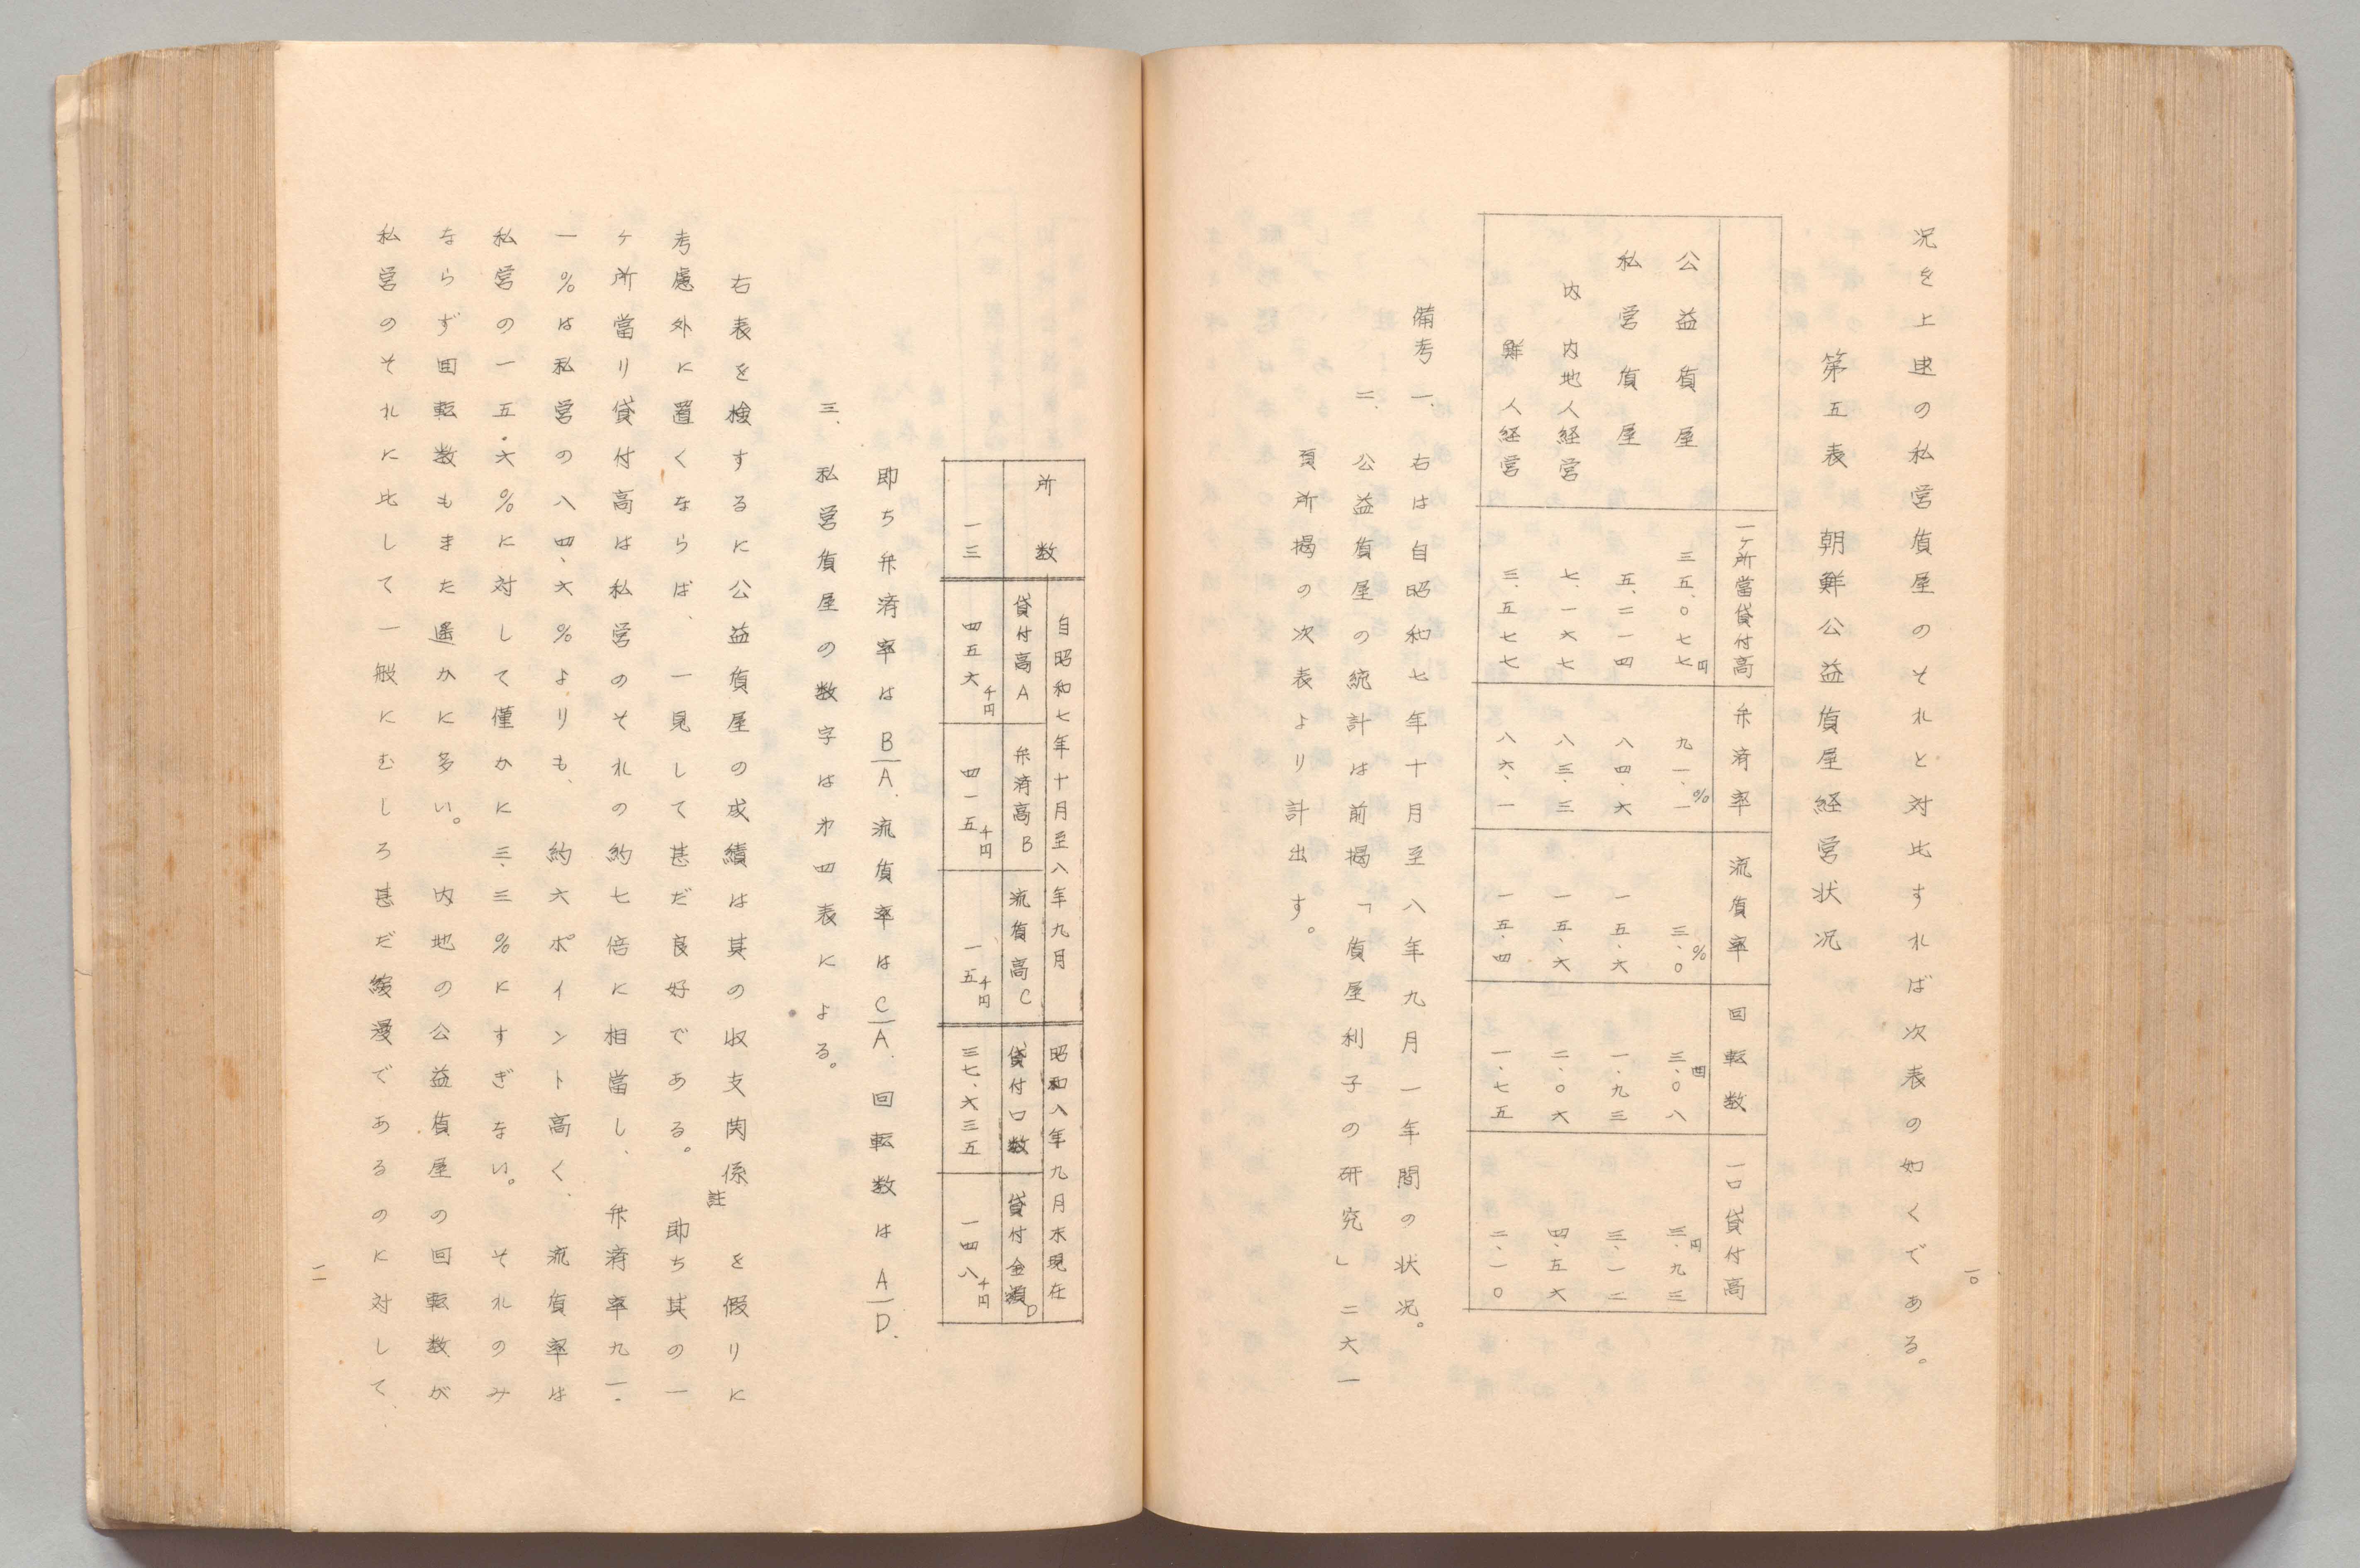 況を上述の私営質屋のそれと対比すれば次表の如くである。
第五表　朝鮮公益質屋経営状況
一ヶ所當貸付高　弁済率　流質率　回転数　一口貸付高
公益質屋　三五、〇七七円　九一、一%　三、〇%　三、〇八回　三、九三円
私営質屋　五、二一四　八四、六　一五、六　一、九三　三、一二
内　内地人経営　七、一六七　八三、三　一五、六　二、〇六　四、五六
鮮人経営　三、五七七　八六、一　一五、四　一、七五　二、一〇
備考　一、右は自昭和七年十月至八年九月一年間の状況。
二、公益質屋の統計は前掲「質屋利子の研究」二六一
頁所掲の次表より計出す。
一〇
所数　自昭和七年十月至八年九月　昭和八年九月末現在
貸付高A　弁済高B　流質高C　貸付口数　貸付金額D
一三　四五六千円　四一五千円　一五千円　三七、六三五　一四八千円
即ち弁済率は B/A. 流質率は C/A. 回転数は A/D.
三、私営質屋の数字は㐧四表による。
右表を検するに公益質屋の成績は其の収支関係註を假りに
考慮外に置くならば、一見して甚だ良好である。即ち其の一
ヶ所當り貸付高は私営のそれの約七倍に相當し、弁済率九一.
一%は私営の八四、六%よりも、約六ポイント高く、流質率は
私営の一五.六%に対して僅かに三、三%にすぎない。それのみ
ならず回転数もまた遙かに多い。内地の公益質屋の回転数が
私営のそれに比して一般にむしろ甚だ緩漫であるのに対して、
一一